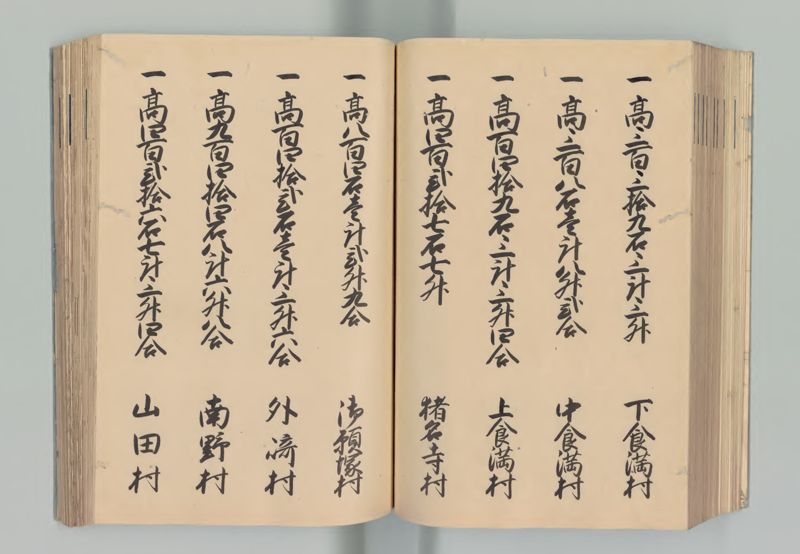 一高三百三拾九石三斗三升 下食満村
一高三百八石壱斗八升弐合 中食満村
一高百四拾九石三斗三升四合 上食満村
一高四百弐拾七石七升 猪名寺村
一高八百四石壱斗弐升九合 御願塚村
一高百四拾弐石壱斗三升六合 外崎村
一高九百四拾四石八斗六升八合 南野村
一高四百弐拾六石七斗三升四合 山田村